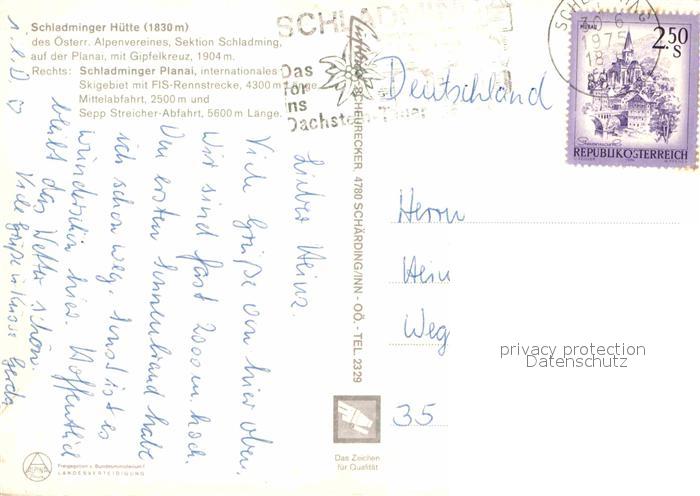 Schladminger Hütte (1830 m)
des Österr. Alpenvereines, Sektion Schladming,
auf der Planai, mit Gipfelkreuz, 1904 m.
Rechts: Schladminger Planai, internationales
Skigebiet mit FIS-Rennstrecke, 4300 m Länge,
Mittelabfahrt, 2500 m und
Sepp Streicher-Abfahrt, 5600 m Länge.
Lieber Heinz.
Viele Grüße von hier oben.
Wir sind fast 2000 m hoch.
Den ersten Sonnenbrand habe
ich schon weg. Sonst ist es
wunderschön hier. Hoffentlich
bleibt das Wetter schön.
Viele Grüße u. Küsse Gerda
i. l. D ♡
ALPINA
Freigegeben v. Bundesministerium f.
LANDESVERTEIDIGUNG
SCHEURECKER, 4780 SCHÄRDING/INN - OÖ. - TEL. 2329
SCHLADMING
Das
Tor
ins
Dachstein
SCHLADMING
30.6
1975
18
MURAU
2.50
S
REPUBLIK ÖSTERREICH
Deutschland
Herrn
Hein
Weg
35
privacy protection
Datenschutz
Das Zeichen
für Qualität